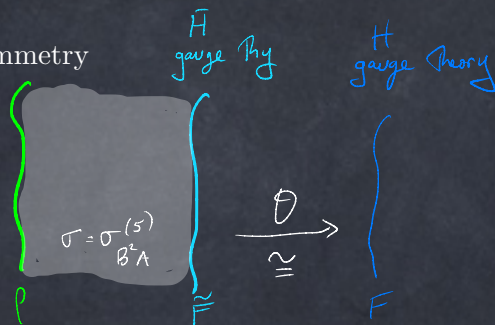 mmetry
H̄
gauge Thy
H
gauge Theory
σ = σ^(5)_{B²A}
θ
≅
ρ
F̃
F